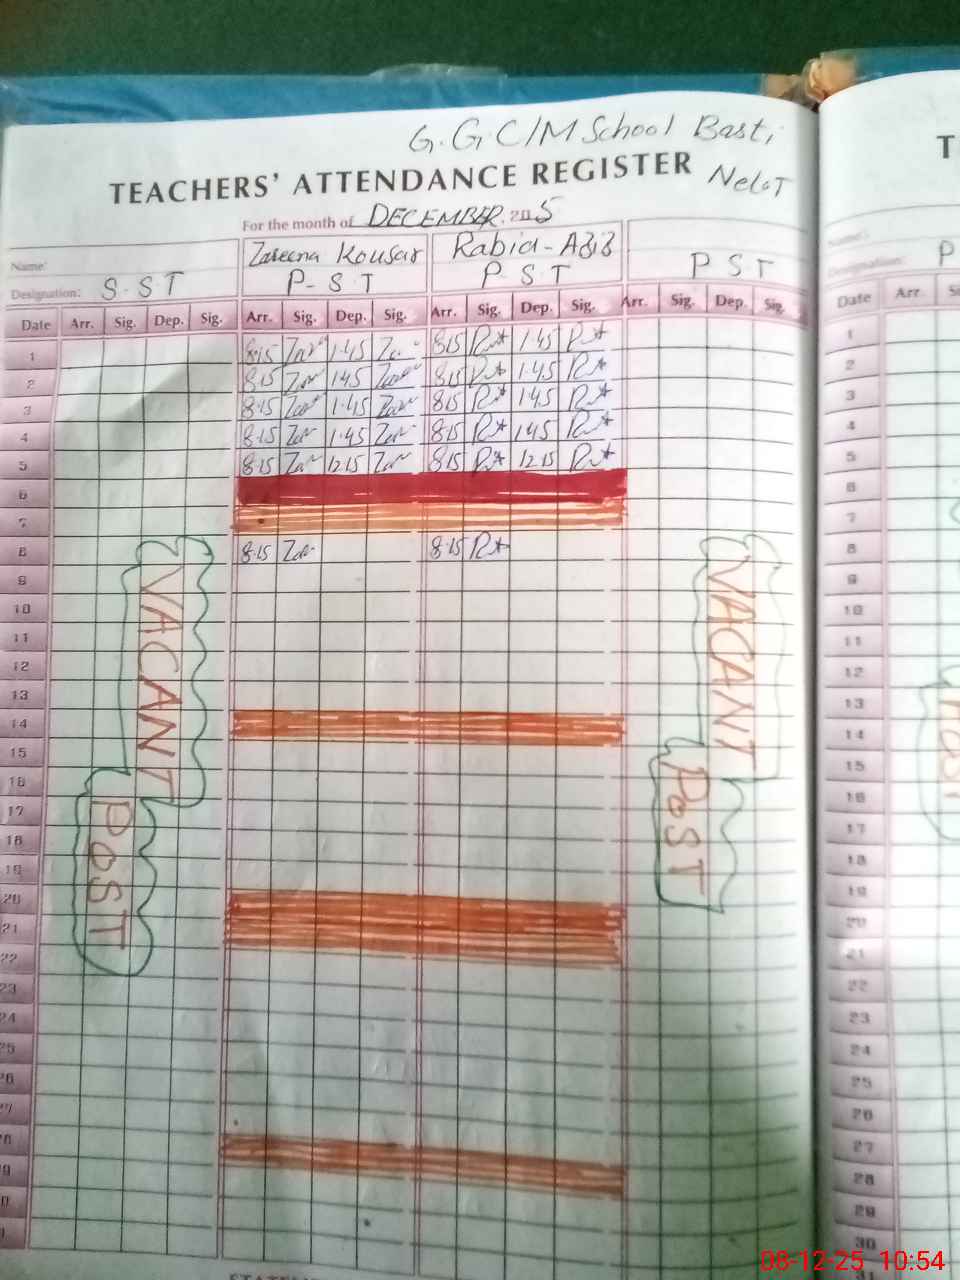 G.G C/M School Basti
TEACHERS' ATTENDANCE REGISTER
For the month of DECEMBER 2025
Name: Zareena Kousar Rabia-Aziz
Designation: S.ST P-ST P ST P ST
Date Arr. Sig. Dep. Sig. Arr. Sig. Dep. Sig. Arr. Sig. Dep. Sig. Arr. Sig. Dep. Sig.
1 8:15 1:45 8:15 1:45
2 8:15 1:45 8:15 1:45
3 8:15 1:45 8:15 1:45
4 8:15 1:45 8:15 1:45
5 8:15 12:15 8:15 12:15
6
7
8 8:15 8:15
9
10
11
12
13
14
15
16
17
18
19
20
21
22
23
24
25
26
27
28
29
VACANT POST
VACANT POST
Name:
Designation: P
Date Arr.
1
2
3
4
5
6
7
8
9
10
11
12
13
14
15
16
17
18
19
20
21
22
23
24
25
26
27
28
29
30
08-12-25 10:54